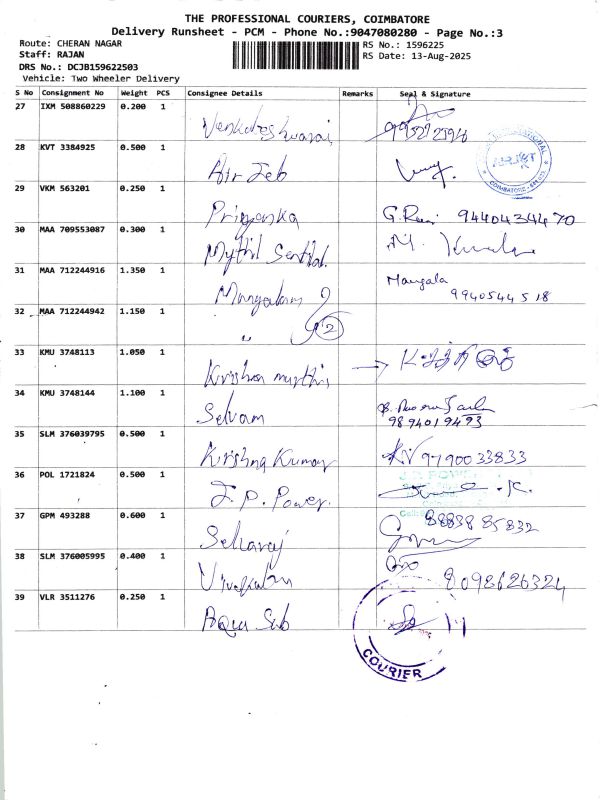 THE PROFESSIONAL COURIERS, COIMBATORE
Delivery Runsheet - PCM - Phone No.:9047080280 - Page No.:3
Route: CHERAN NAGAR
RS No.: 1596225
Staff: RAJAN
RS Date: 13-Aug-2025
DRS No.: DCJB159622503
Vehicle: Two Wheeler Delivery
S No Consignment No Weight PCS Consignee Details Remarks Seal & Signature
27 IXM 508860229 0.200 1
28 KVT 3384925 0.500 1
Air Jeb
29 VKM 563201 0.250 1
Priyanka 9440434470
30 MAA 709553087 0.300 1
Mythil
31 MAA 712244916 1.350 1
Mangalam Mangala
9940544518
32 MAA 712244942 1.150 1
2
33 KMU 3748113 1.050 1
Krishna
34 KMU 3748144 1.100 1
Selvam
9894019493
35 SLM 376039795 0.500 1
Krishna Kumar 9790033833
36 POL 1721824 0.500 1
J.P. Power.
37 GPM 493288 0.600 1
Selvaraj 8883885832
38 SLM 376005995 0.400 1
8098626324
39 VLR 3511276 0.250 1
Aqua Sub
COURIER